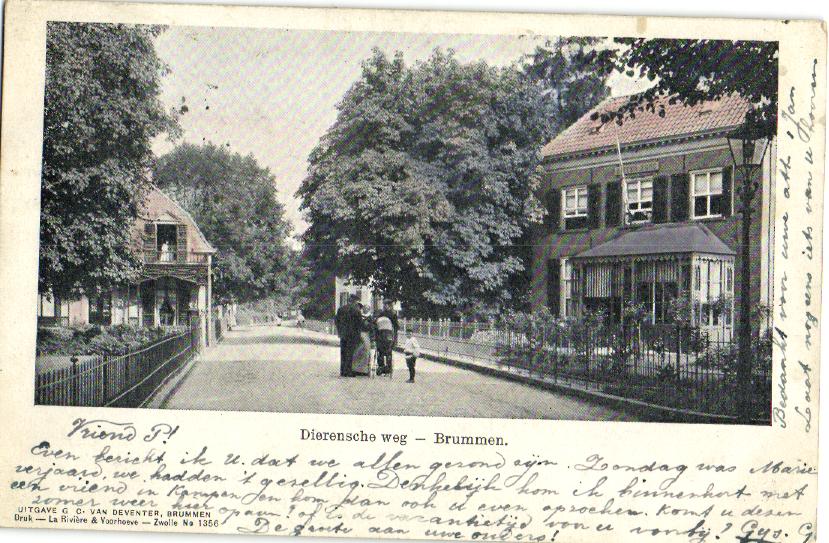 Dierensche weg — Brummen.
Vriend P!
Even bericht ik U dat we allen gezond zijn. Zondag was Marie
verjaard, we hadden 't gezellig. Denkelijk kom ik binnenkort met
een vriend in Kampen en kom dan ook u even opzoeken. Komt u dezen
zomer weer hier of is de vacantietijd voor u voorbij? Gijs. G
De groete aan uwe ouders!
UITGAVE G. C. VAN DEVENTER, BRUMMEN
Druk — La Rivière & Voorhoeve — Zwolle No 1356
Bedankt voor uwe Jan
Laat nogeens iets van u hooren